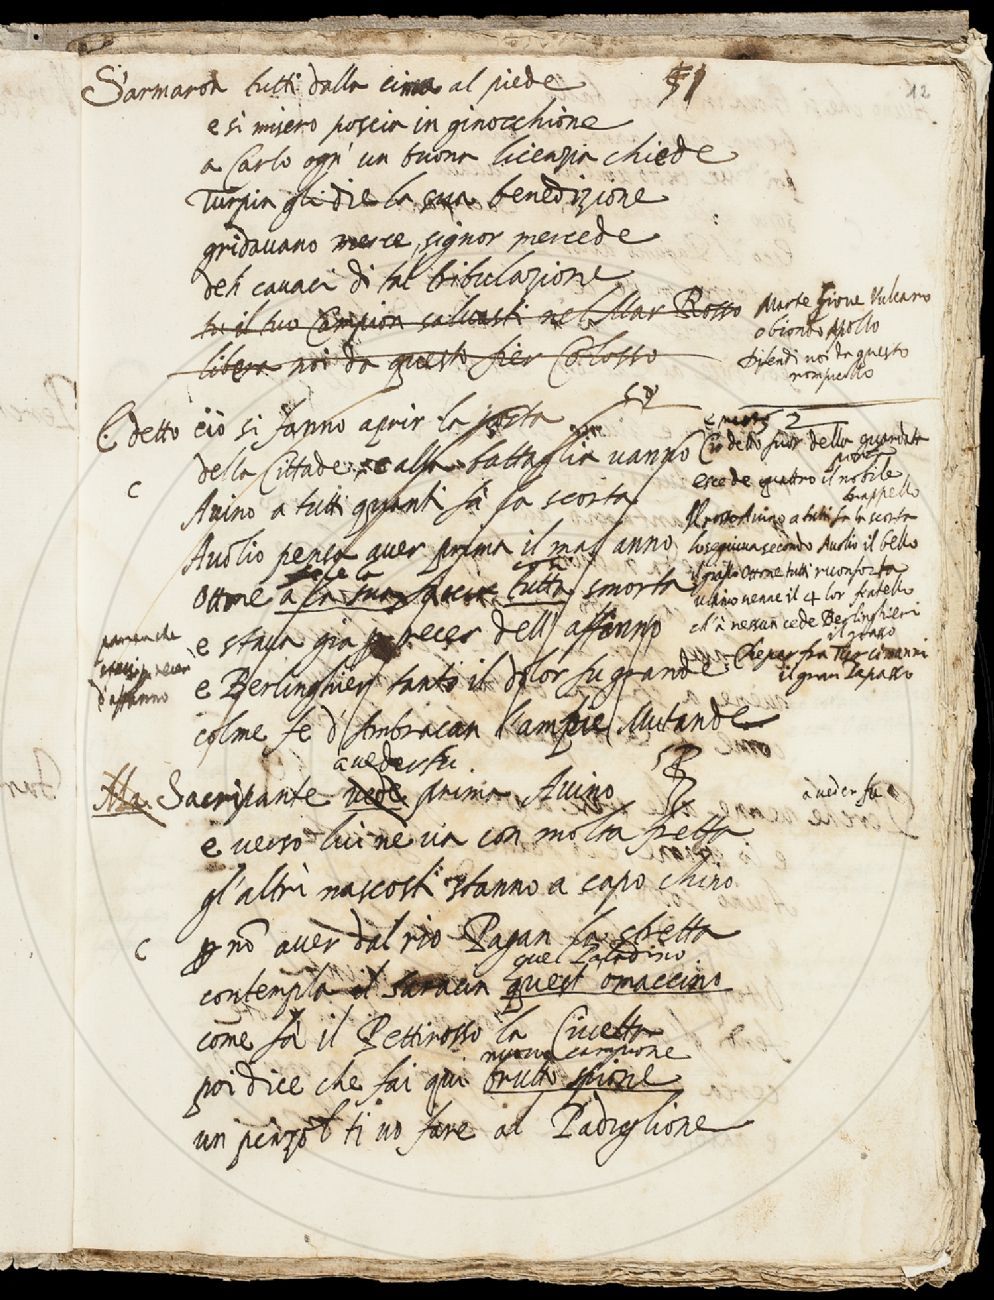 51
12
S'armaron tutti dalla cima al piede
e si misero poscia in ginocchione
a Carlo ogn'un buona licenzia chiede
Turpin gli die la sua benedizione
gridavano merce, signor mercede
deh cavaci di tal tribulazione
tu il tuo Campion salvasti nel Mar Rosso
libera noi da questo fier Colosso
Marte Giove Vulcano
o biondo Apollo
difendi noi da questo
rompicollo
E detto ciò si fanno aprir la porta
della Cittade, e alla battaglia vanno
C
Avino a tutti quanti fà la scorta
Avolio pensa aver prima il mal anno
Ottone a la sua faccia tutta smorta
e stava già p recer dell'affanno
parea che
d'affanno
e Berlinghier tanto il dolor fu grande
colme fe d'Ambracan l'ampie Mutande
52
Ciò detto fuor della guardata porta
escede quattro il nobile
drappello
Il rosso Avino a tutti fa la scorta
lo seguiva secondo Avolio il bello
il grasso Ottone tutti riconforta
ultimo venne il 4 lor fratello
ch'à nessun cede Berlinghieri
il grasso
Che par fra Turcimanni
il gran Bapasso
a veder fu
Ma Sacripante vede prima Avino
a veder fu
e verso lui ne và con molta fretta
gl'altri nascosti stanno a capo chino
C
p nō aver dal rio Pagan la stretta
quel Paladino
contempla il Saracin quest'omaccino
come fà il Pettirosso la Civetta
nuovo campione
poi dice che fai qui brutto spione
un penzol ti vo fare al Padiglione